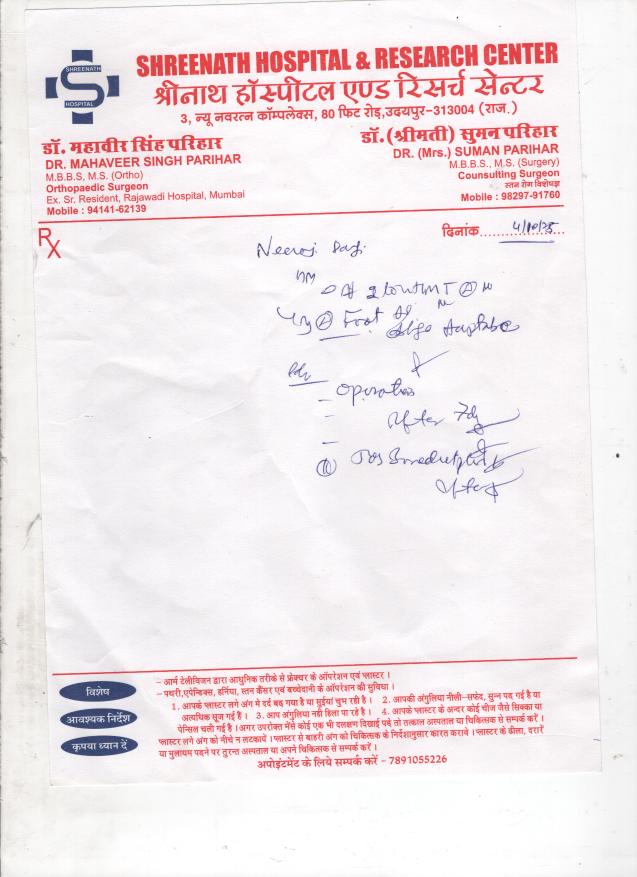 SHREENATH
HOSPITAL
SHREENATH HOSPITAL & RESEARCH CENTER
श्रीनाथ हॉस्पीटल एण्ड रिसर्च सेन्टर
3, न्यू नवरत्न कॉम्पलेक्स, 80 फिट रोड़,उदयपुर-313004 (राज.)
डॉ. महावीर सिंह परिहार
DR. MAHAVEER SINGH PARIHAR
M.B.B.S, M.S. (Ortho)
Orthopaedic Surgeon
Ex. Sr. Resident, Rajawadi Hospital, Mumbai
Mobile : 94141-62139
डॉ.(श्रीमती) सुमन परिहार
DR. (Mrs.) SUMAN PARIHAR
M.B.B.S., M.S. (Surgery)
Counsulting Surgeon
स्तन रोग विशेषज्ञ
Mobile : 98297-91760
Rx
दिनांक
Neeraj
Foot
Operation
After
After
विशेष
आवश्यक निर्देश
कृपया ध्यान दें
- आर्म टेलीविजन द्वारा आधुनिक तरीके से फ्रेक्चर के ऑपरेशन एवं प्लास्टर ।
- पथरी,एपेन्डिक्स, हर्निया, स्तन कैंसर एवं बच्चेदानी के ऑपरेशन की सुविधा ।
1. आपके प्लास्टर लगे अंग मे दर्द बढ़ गया है या सुईयां चुभ रही है । 2. आपकी अंगुलिया नीली-सफेद, सुन्न पड़ गई है या
अत्यधिक सूज गई है । 3. आप अंगुलिया नही हिला पा रहे है । 4. आपके प्लास्टर के अन्दर कोई चीज जैसे सिक्का या
पेन्सिल चली गई है । अगर उपरोक्त मेंसे कोई एक भी लक्षण दिखाई पड़े तो तत्काल अस्पताल या चिकित्सक से सम्पर्क करें ।
प्लास्टर लगे अंग को नीचे न लटकावें । प्लास्टर से बाहरी अंग को चिकित्सक के निर्देशानुसार कसरत करावे । प्लास्टर के ढीला, दरारें
या मुलायम पड़ने पर तुरन्त अस्पताल या अपने चिकित्सक से सम्पर्क करें ।
अपोइंटमेंट के लिये सम्पर्क करें - 7891055226